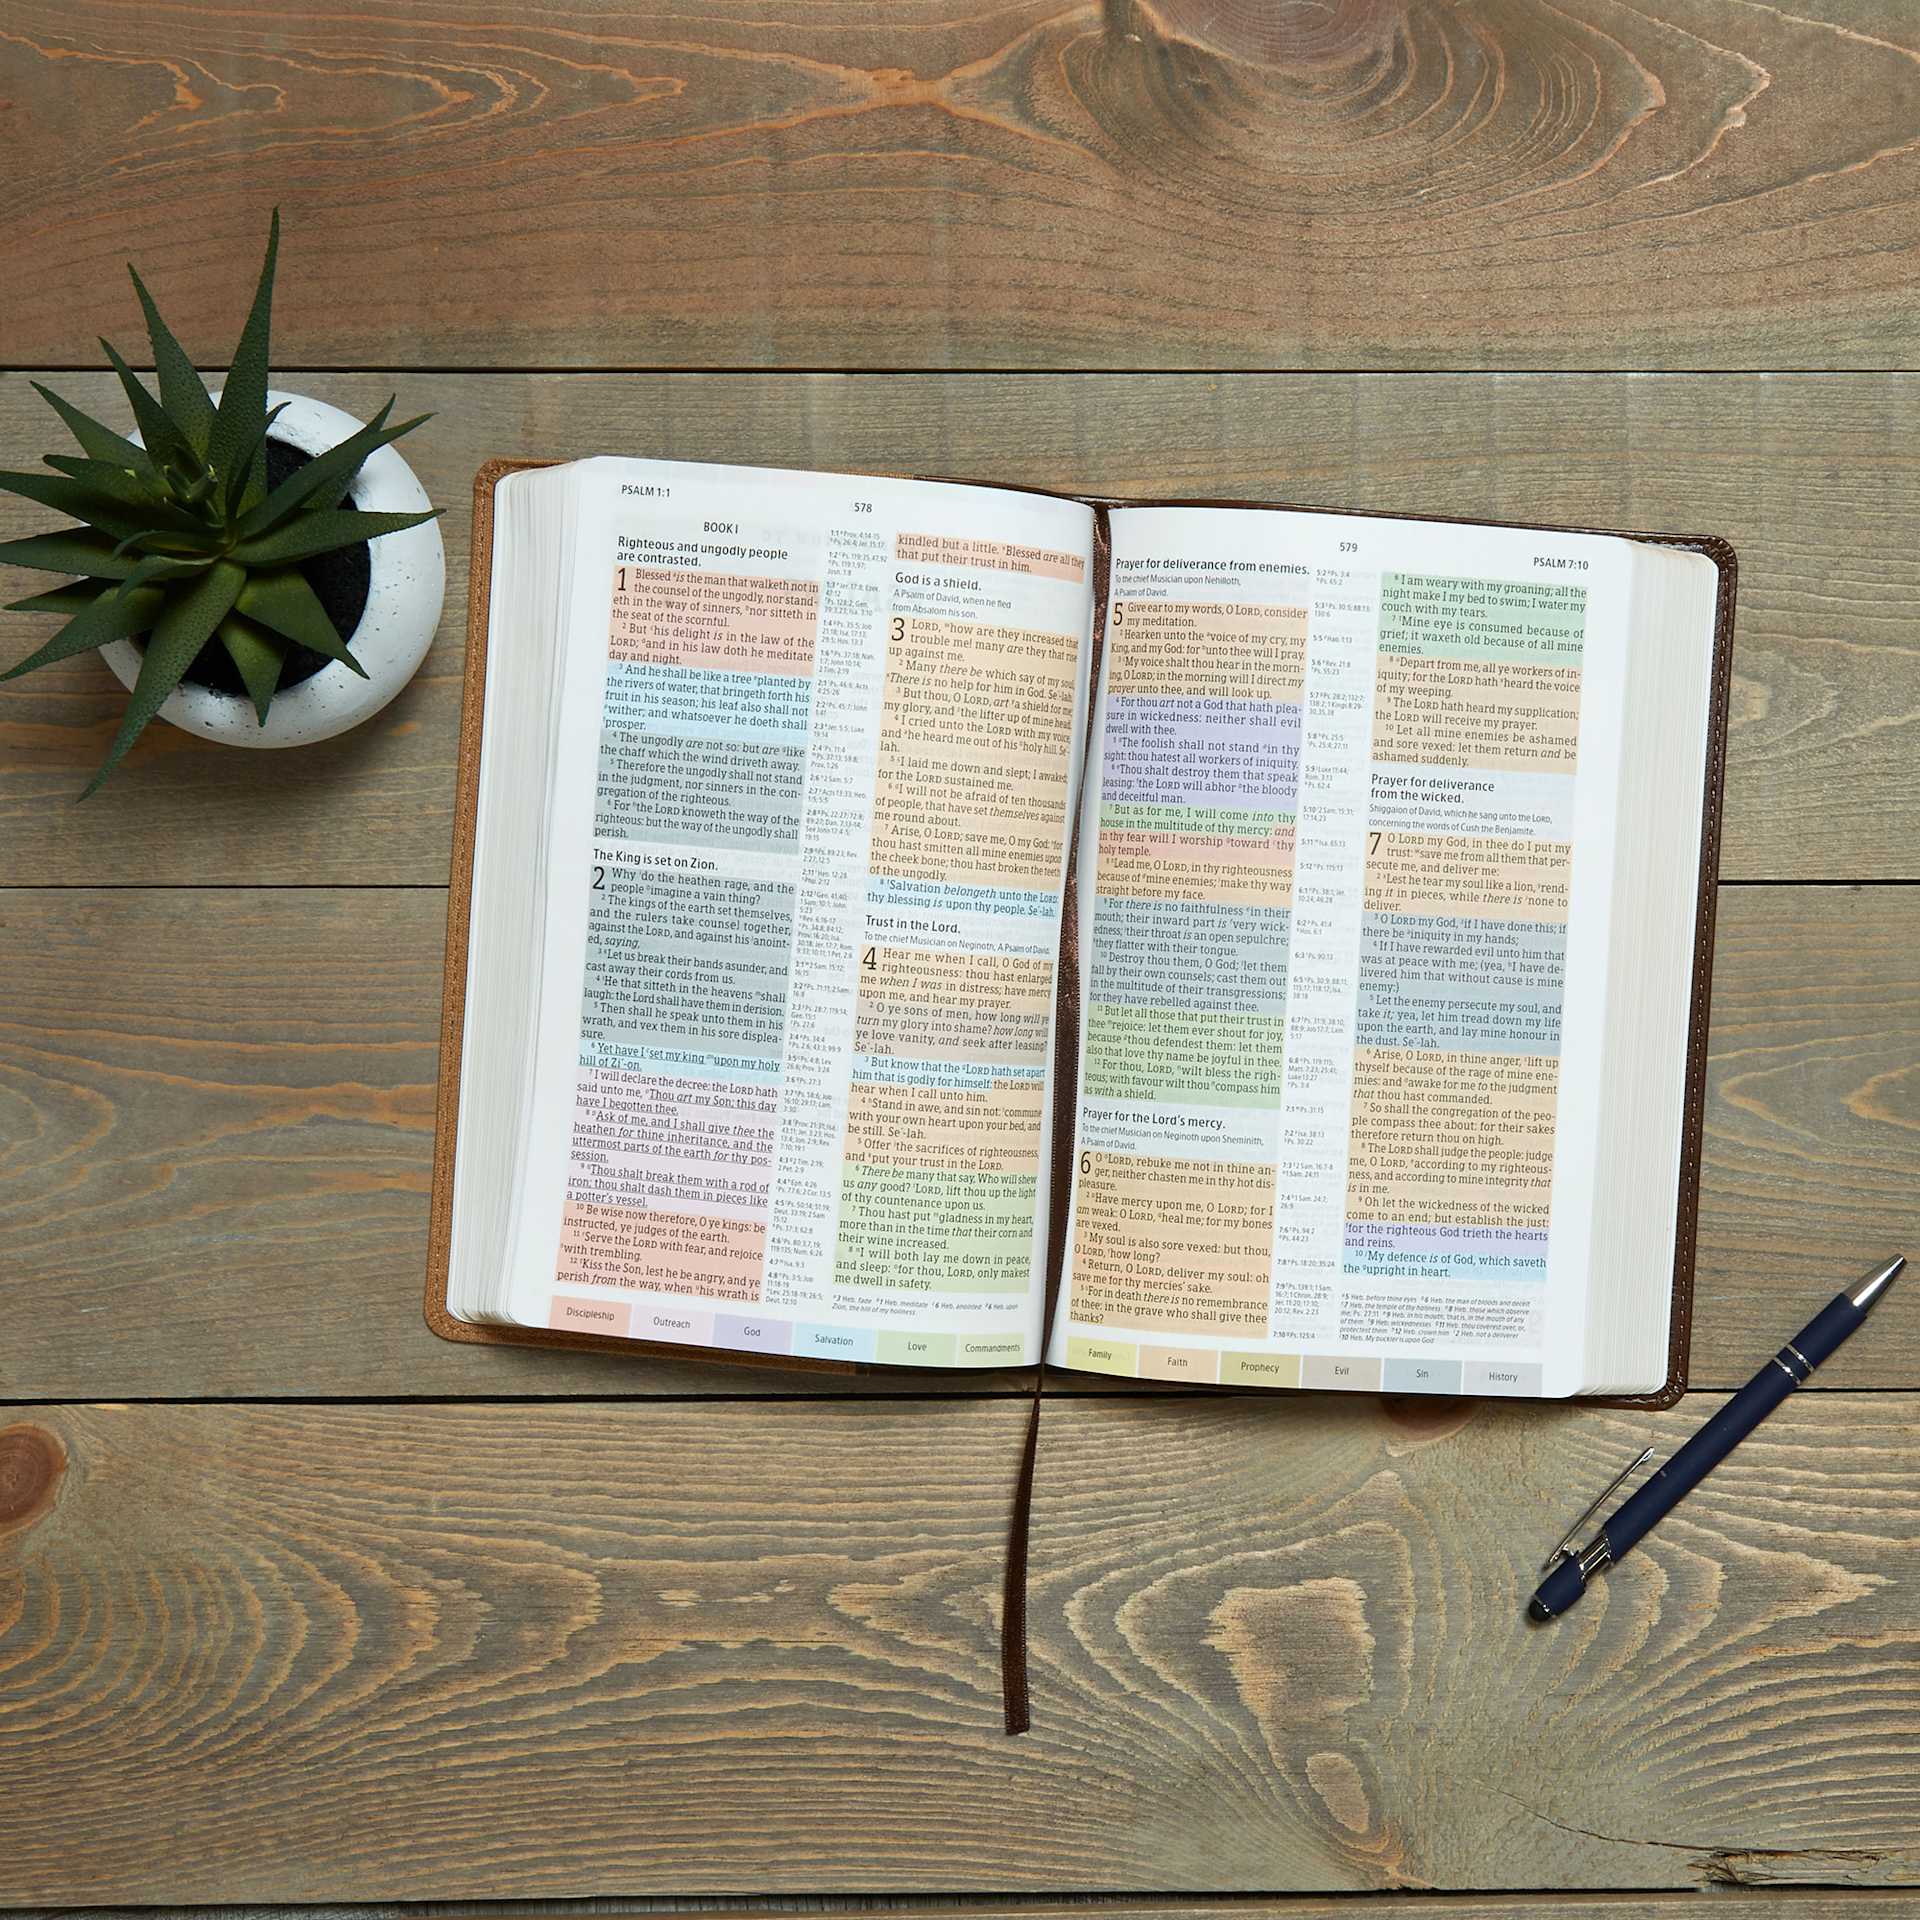 PSALM 1:1
578
BOOK I
Righteous and ungodly people
are contrasted.
1 Blessed is the man that walketh not in
the counsel of the ungodly, nor stand-
eth in the way of sinners, nor sitteth in
the seat of the scornful.
2 But his delight is in the law of the
LORD; and in his law doth he meditate
day and night.
3 And he shall be like a tree planted by
the rivers of water, that bringeth forth his
fruit in his season; his leaf also shall not
wither; and whatsoever he doeth shall
prosper.
4 The ungodly are not so: but are like
the chaff which the wind driveth away.
5 Therefore the ungodly shall not stand
in the judgment, nor sinners in the con-
gregation of the righteous.
6 For the LORD knoweth the way of the
righteous: but the way of the ungodly shall
perish.
The King is set on Zion.
2 Why do the heathen rage, and the
people imagine a vain thing?
2 The kings of the earth set themselves,
and the rulers take counsel together,
against the LORD, and against his anoint-
ed, saying,
3 Let us break their bands asunder, and
cast away their cords from us.
4 He that sitteth in the heavens shall
laugh: the Lord shall have them in derision.
5 Then shall he speak unto them in his
wrath, and vex them in his sore displea-
sure.
6 Yet have I set my king upon my holy
hill of Zi'-on.
7 I will declare the decree: the LORD hath
said unto me, Thou art my Son; this day
have I begotten thee.
8 Ask of me, and I shall give thee the
heathen for thine inheritance, and the
uttermost parts of the earth for thy pos-
session.
9 Thou shalt break them with a rod of
iron; thou shalt dash them in pieces like
a potter's vessel.
10 Be wise now therefore, O ye kings: be
instructed, ye judges of the earth.
11 Serve the LORD with fear, and rejoice
with trembling.
12 Kiss the Son, lest he be angry, and ye
perish from the way, when his wrath is
kindled but a little. Blessed are all they
that put their trust in him.
God is a shield.
A Psalm of David, when he fled
from Absalom his son.
3 LORD, how are they increased that
trouble me! many are they that rise
up against me.
2 Many there be which say of my soul,
There is no help for him in God. Se'-lah.
3 But thou, O LORD, art a shield for me;
my glory, and the lifter up of mine head.
4 I cried unto the LORD with my voice,
and he heard me out of his holy hill. Se'-
lah.
5 I laid me down and slept; I awaked;
for the LORD sustained me.
6 I will not be afraid of ten thousands
of people, that have set themselves against
me round about.
7 Arise, O LORD; save me, O my God: for
thou hast smitten all mine enemies upon
the cheek bone; thou hast broken the teeth
of the ungodly.
8 Salvation belongeth unto the LORD:
thy blessing is upon thy people. Se'-lah.
Trust in the Lord.
To the chief Musician on Neginoth, A Psalm of David.
4 Hear me when I call, O God of my
righteousness: thou hast enlarged
me when I was in distress; have mercy
upon me, and hear my prayer.
2 O ye sons of men, how long will ye
turn my glory into shame? how long will
ye love vanity, and seek after leasing?
Se'-lah.
3 But know that the LORD hath set apart
him that is godly for himself: the LORD will
hear when I call unto him.
4 Stand in awe, and sin not: commune
with your own heart upon your bed, and
be still. Se'-lah.
5 Offer the sacrifices of righteousness,
and put your trust in the LORD.
6 There be many that say, Who will shew
us any good? LORD, lift thou up the light
of thy countenance upon us.
7 Thou hast put gladness in my heart,
more than in the time that their corn and
their wine increased.
8 I will both lay me down in peace,
and sleep: for thou, LORD, only makest
me dwell in safety.
Discipleship
Outreach
God
Salvation
Love
Commandments
579
PSALM 7:10
Prayer for deliverance from enemies.
To the chief Musician upon Nehiloth,
A Psalm of David.
5 Give ear to my words, O LORD, consider
my meditation.
2 Hearken unto the voice of my cry, my
King, and my God: for unto thee will I pray.
3 My voice shalt thou hear in the morn-
ing, O LORD; in the morning will I direct my
prayer unto thee, and will look up.
4 For thou art not a God that hath plea-
sure in wickedness: neither shall evil
dwell with thee.
5 The foolish shall not stand in thy
sight: thou hatest all workers of iniquity.
6 Thou shalt destroy them that speak
leasing: the LORD will abhor the bloody
and deceitful man.
7 But as for me, I will come into thy
house in the multitude of thy mercy: and
in thy fear will I worship toward thy
holy temple.
8 Lead me, O LORD, in thy righteousness
because of mine enemies; make thy way
straight before my face.
9 For there is no faithfulness in their
mouth; their inward part is very wick-
edness; their throat is an open sepulchre;
they flatter with their tongue.
10 Destroy thou them, O God; let them
fall by their own counsels; cast them out
in the multitude of their transgressions;
for they have rebelled against thee.
11 But let all those that put their trust in
thee rejoice: let them ever shout for joy,
because thou defendest them: let them
also that love thy name be joyful in thee.
12 For thou, LORD, wilt bless the righ-
teous; with favour wilt thou compass him
as with a shield.
Prayer for the Lord's mercy.
To the chief Musician on Neginoth upon Sheminith,
A Psalm of David.
6 O LORD, rebuke me not in thine an-
ger, neither chasten me in thy hot dis-
pleasure.
2 Have mercy upon me, O LORD; for I
am weak: O LORD, heal me; for my bones
are vexed.
3 My soul is also sore vexed: but thou,
O LORD, how long?
4 Return, O LORD, deliver my soul: oh
save me for thy mercies' sake.
5 For in death there is no remembrance
of thee: in the grave who shall give thee
thanks?
6 I am weary with my groaning; all the
night make I my bed to swim; I water my
couch with my tears.
7 Mine eye is consumed because of
grief; it waxeth old because of all mine
enemies.
8 Depart from me, all ye workers of in-
iquity; for the LORD hath heard the voice
of my weeping.
9 The LORD hath heard my supplication;
the LORD will receive my prayer.
10 Let all mine enemies be ashamed
and sore vexed: let them return and be
ashamed suddenly.
Prayer for deliverance
from the wicked.
Shiggaion of David, which he sang unto the LORD,
concerning the words of Cush the Benjamite.
7 O LORD my God, in thee do I put my
trust: save me from all them that per-
secute me, and deliver me:
2 Lest he tear my soul like a lion, rend-
ing it in pieces, while there is none to
deliver.
3 O LORD my God, if I have done this; if
there be iniquity in my hands;
4 If I have rewarded evil unto him that
was at peace with me; (yea, I have de-
livered him that without cause is mine
enemy:)
5 Let the enemy persecute my soul, and
take it; yea, let him tread down my life
upon the earth, and lay mine honour in
the dust. Se'-lah.
6 Arise, O LORD, in thine anger, lift up
thyself because of the rage of mine ene-
mies: and awake for me to the judgment
that thou hast commanded.
7 So shall the congregation of the peo-
ple compass thee about: for their sakes
therefore return thou on high.
8 The LORD shall judge the people: judge
me, O LORD, according to my righteous-
ness, and according to mine integrity that
is in me.
9 Oh let the wickedness of the wicked
come to an end; but establish the just:
for the righteous God trieth the hearts
and reins.
10 My defence is of God, which saveth
the upright in heart.
Family
Faith
Prophecy
Evil
Sin
History